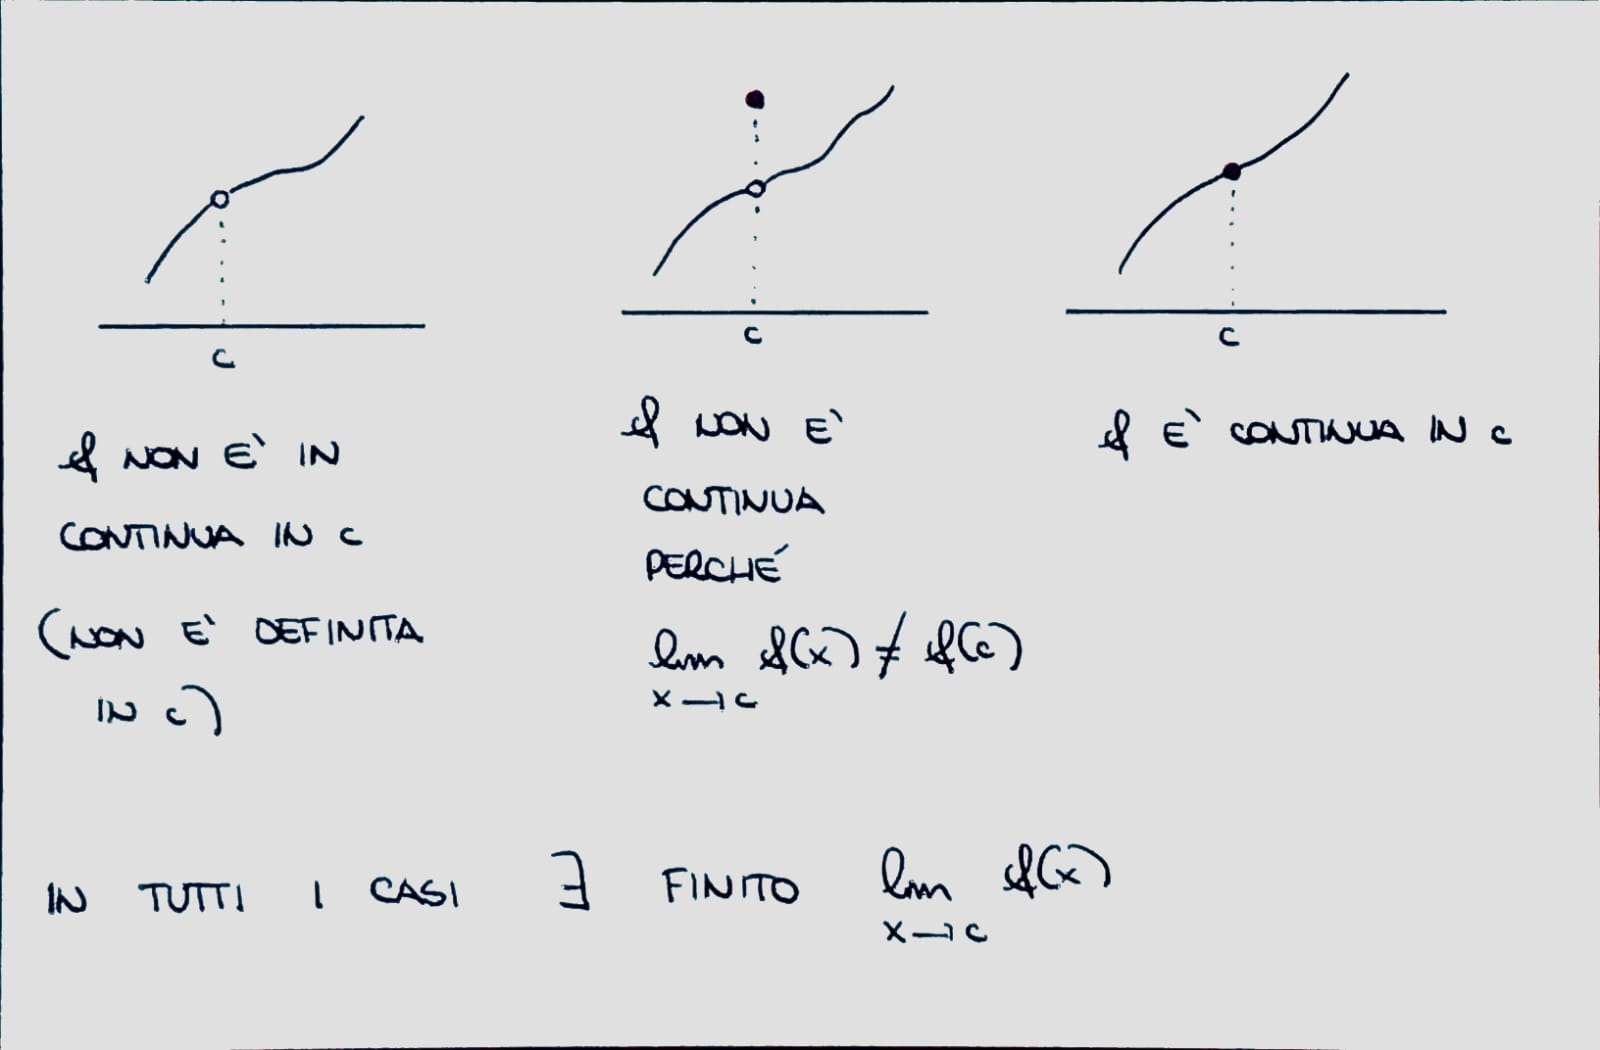 c
c
c
f NON E' IN
CONTINUA IN c
(NON E' DEFINITA
IN c)
f NON E'
CONTINUA
PERCHÉ
lim f(x) ≠ f(c)
x→c
f E' CONTINUA IN c
IN TUTTI I CASI ∃ FINITO lim f(x)
x→c